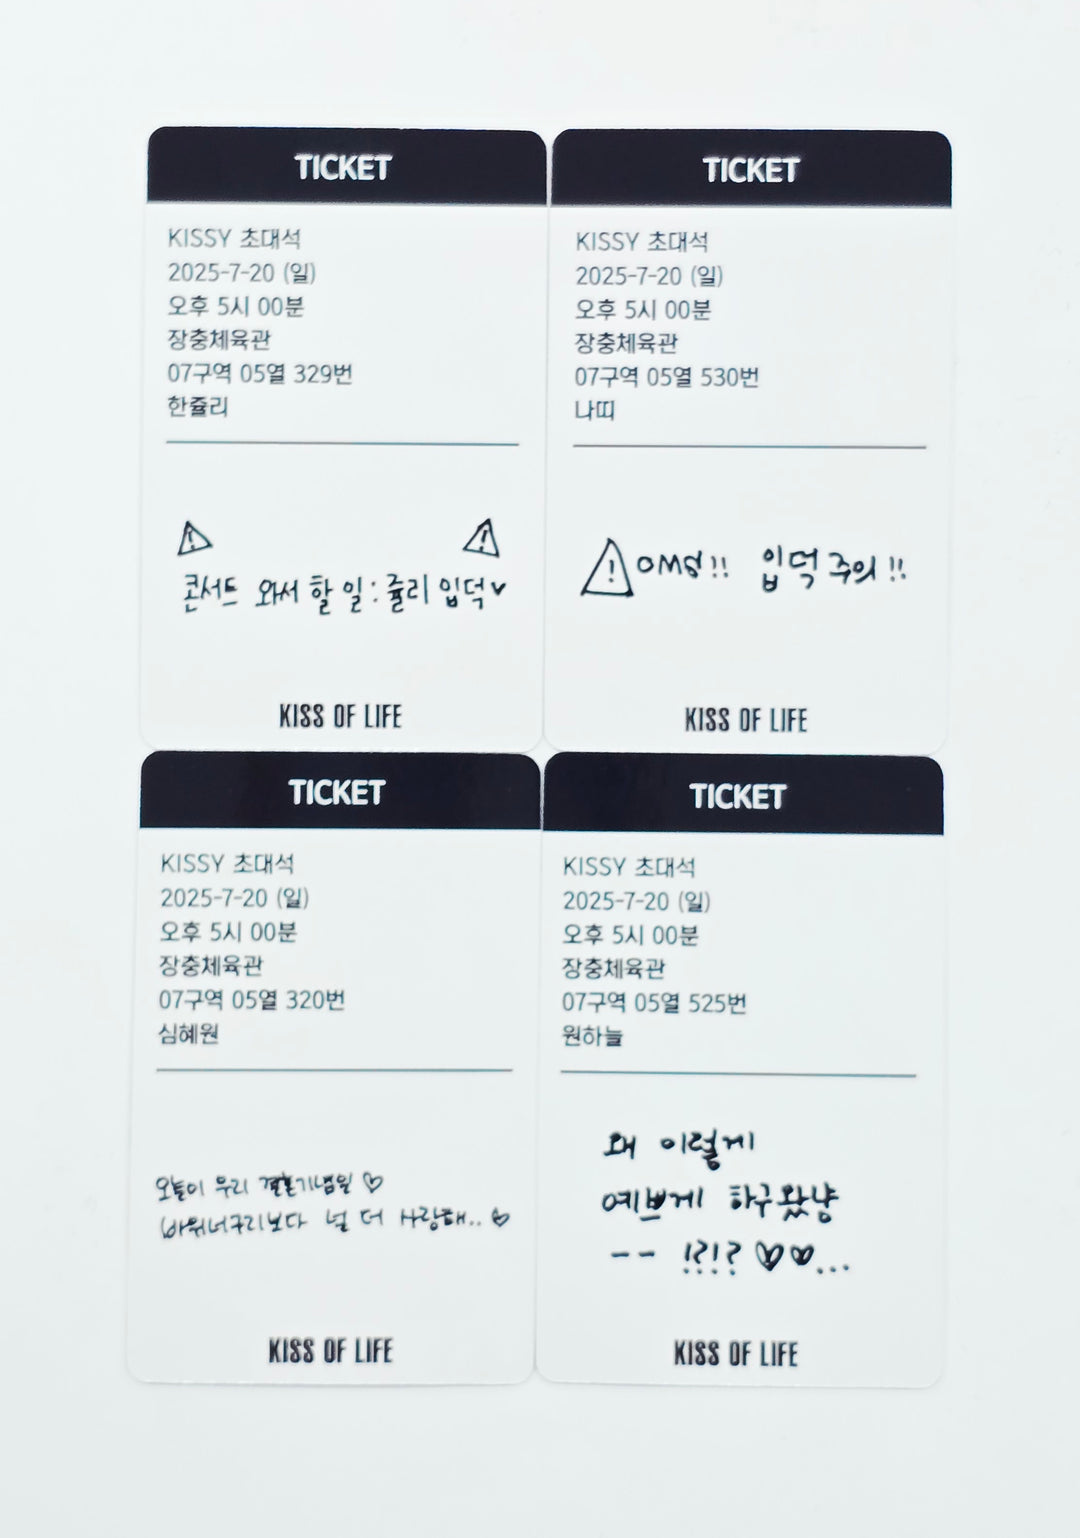 TICKET
KISSY 초대석
2025-7-20 (일)
오후 5시 00분
장충체육관
07구역 05열 329번
한쥴리
콘서트 와서 할 일 : 쥴리 입덕♥
KISS OF LIFE
TICKET
KISSY 초대석
2025-7-20 (일)
오후 5시 00분
장충체육관
07구역 05열 530번
나띠
OMG!! 입덕 주의!!
KISS OF LIFE
TICKET
KISSY 초대석
2025-7-20 (일)
오후 5시 00분
장충체육관
07구역 05열 320번
심혜원
오늘이 우리 결혼기념일 ♡
바위너구리보다 널 더 사랑해.. ♡
KISS OF LIFE
TICKET
KISSY 초대석
2025-7-20 (일)
오후 5시 00분
장충체육관
07구역 05열 525번
원하늘
왜 이렇게
예쁘게 하구왔냥
-- !?!? ♡♡...
KISS OF LIFE